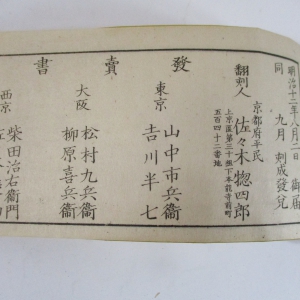 明治十二年八月二日御届
同　九月　刻成發兌
京都府平民
翻刻人　佐々木惣四郎
上京區第三十組下本能寺前町
五百四十二番地
發賣書
東京
山中市兵衞
吉川半七
大阪
松村九兵衞
柳原喜兵衞
西京
柴田治右衞門